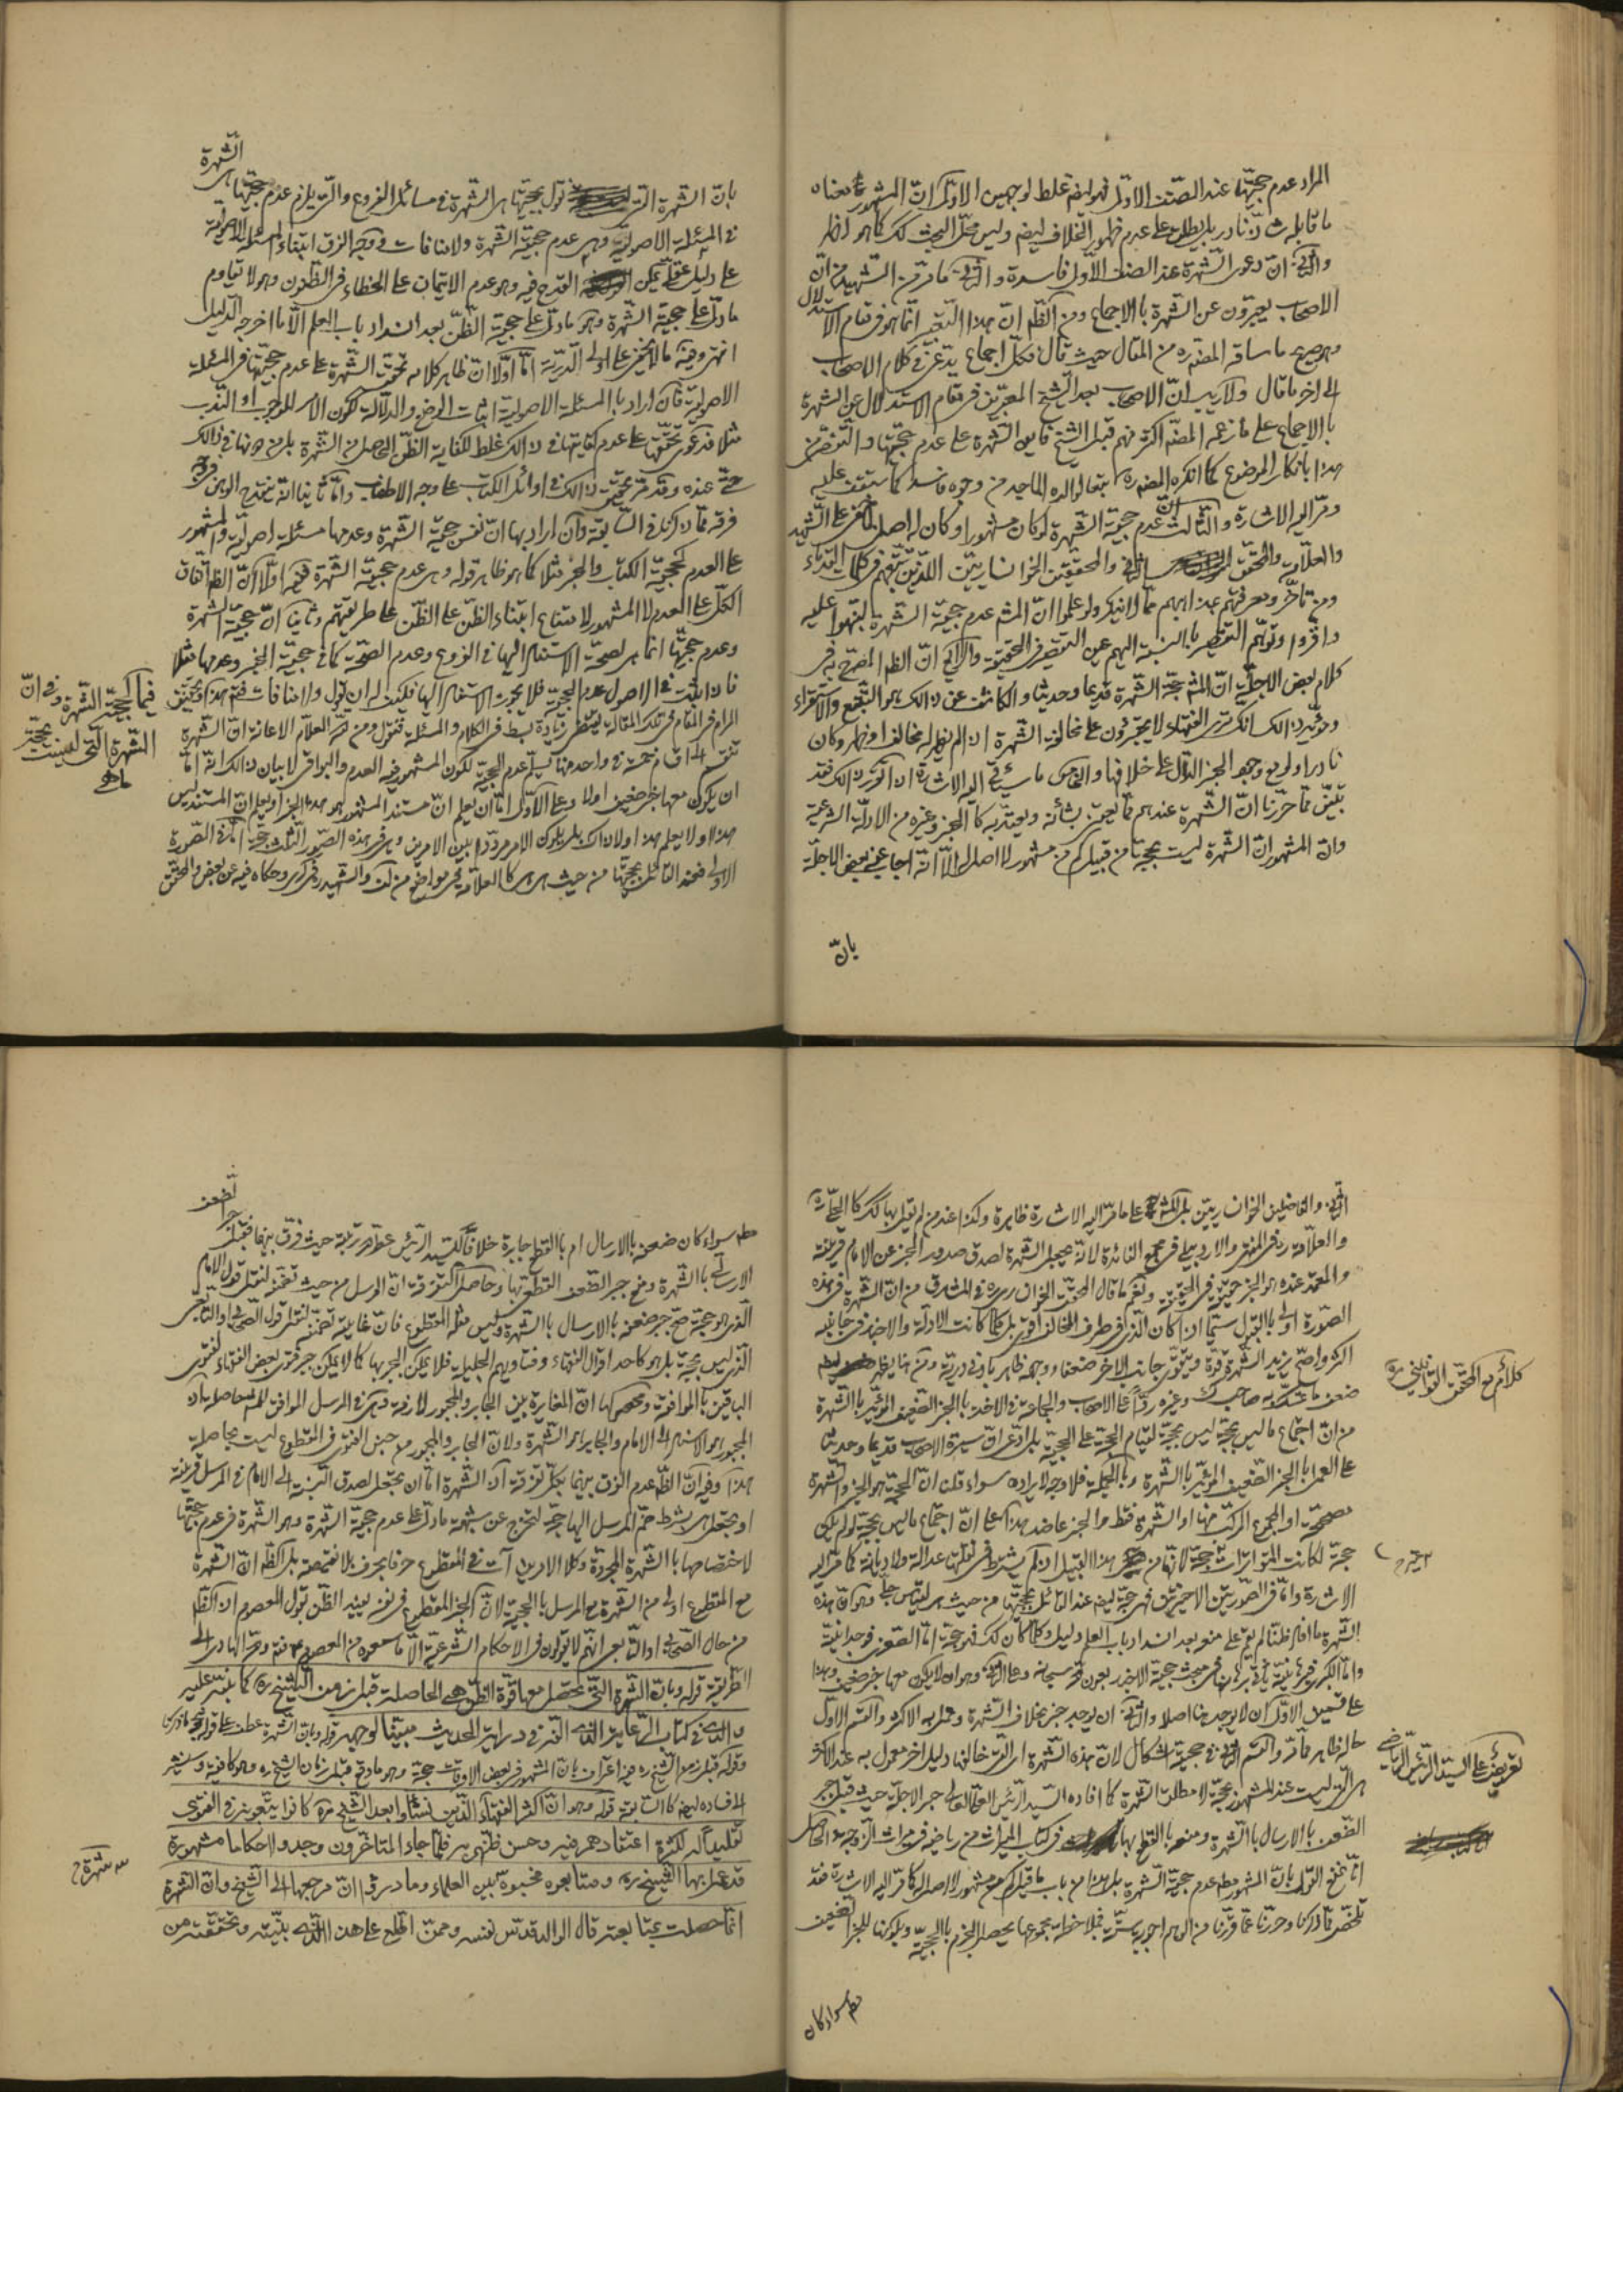 المراد عدم حجيتها عند الصنف الاول فهو ايضا غلط لوجهين الاول ان المشهور معناه
ما قابله شاذ نادر بل يطلق على عدم ظهور الخلاف ايضا وليس محل البحث كك كما هو ظاهر
والثاني ان دعوى الشهرة عند الصنف الاول فاسدة والثاني ما مر من الشهيد من ان
الاصحاب يعبرون عن الشهرة بالاجماع ومن الظ ان هذا التعبير انما هو في مقام الاستدلال
وهو صريح ما ساقه المصنف ره من المقال حيث قال فكل اجماع يدعى في كلام الاصحاب
الى اخر ما قال ولا ريب ان الاصحاب بعد الشيخ المعبرين في مقام الاستدلال عن الشهرة
بالاجماع على ما زعمه المصنف اكثر منهم قبل الشيخ فاين الشهرة على عدم حجيتها والتفصي من
هذا بانكار الموضوع كما انكره المصنف ره تبعا لوالده الماجد من وجوه فاسد كما ستقف عليه
ومر اليه الاشارة والثالث ان عدم حجية الشهرة لو كان مشهورا وكان له اصل لما خفي على الشهيد
والعلامة والمحقق الثاني والمحققين الخوانساريين اللذين تتبعهم في كلمات القدماء
ومن تاخر ومعرفتهم بمذاهبهم مما لا ينكر ولو علموا ان المش عدم حجية الشهرة لنبهوا عليه
واقروا وتوهم التقصير بالنسبة اليهم عين التقصير في الحقيقة والرابع ان الظ المصرح به في
كلام بعض الاجلة ان المش حجية الشهرة قديما وحديثا والكاشف عن ذالك هو التتبع والاستقراء
ومويد ذالك انك ترى الفقهاء لا يجترؤن على مخالفة الشهرة اذا لم يظهر له مخالف او ظهر وكان
نادرا ولو مع وجود الخبر الدال على خلافها والخامس ما سياتي اليه الاشارة اذا تقرر ذالك فقد
تبين مما حررنا ان الشهرة عندهم مما يعتني بشأنه ويعتد به كالخبر وغيره من الادلة الشرعية
وان المشهور ان الشهرة ليست بحجة من قبيل كم من مشهور لا اصل له الا انه اجاب عنه بعض الاجلة
بان
الشهرة
بان الشهرة التي نقول بحجيتها هي الشهرة في مسائل الفروع والتي يلزم عدم حجيتها هي
في المسئلة الاصولية وهي عدم حجية الشهرة ولا منافات في وجه الفرق ابتناء المسئلة الاصولية
على دليل عقلي يمكن القدح فيه وهو عدم الايتمان على الخطاء في الظنون وهو لا يقاوم
ما دل على حجية الشهرة وهو ما دل على حجية الظن بعد انسداد باب العلم الا ما اخرجه الدليل
انتهى وفيه ما لا يخفى على اولى الدرية اما اولا ان ظاهر كلامه تحقق الشهرة على عدم حجيتها في المسئلة
الاصولية فان اراد بالمسئلة الاصولية اثبات الوضع والدلالة ككون الامر للوجوب او الندب
مثلا فدعوى تحققها على عدم كفايتها في ذالك غلط لكفاية الظن الحاصل من الشهرة بل من دونها في ذالك
حتى عنده وقد مر تحقيق ذالك في اوائل الكتاب على وجه الاطناب واما ثانيا انه ينقدح الوهن في وجه
فرقه مما ذكرنا في السابقة وان اراد بها ان نفس حجية الشهرة وعدمها مسئلة اصولية والمشهور
على العدم كحجية الكتاب والخبر مثلا كما هو ظاهر قوله وهي عدم حجية الشهرة ففيه اولا ان الظ اتفاق
الكل على العدم لا المشهور لامتناع ابتناء الظن على الظن على طريقتهم وثانيا ان حجية الشهرة
وعدم حجيتها انما هي لصحة الاستناد اليها في الفروع وعدم الصحة كما في حجية الخبر وعدمها مثلا
فاذا ثبت في الاصول عدم الحجية فلا يجوز الاستناد اليها فكيف له ان يقول ولا منافات ثم هذا وتحقيق
المرام في المقام في تلك المقالة يقتضي زيادة بسط في الكلام والمسئلة فنقول ومن الله العلام الاعانة ان الشهرة
تنقسم الى اقسام خمسة في واحد منها نسلم عدم الحجية لكون المشهور فيه العدم والبواقي لا بيان ذالك انه اما
ان يكون معها خبر ضعيف اولا وعلى الاول اما ان يعلم ان مستند المشهور هو هذا الخبر او يعلم ان المستند ليس
هذا او لا يعلم هذا ولا ذاك بل يكون الامر مرددا بين الامرين وهي في هذه الصور الثلث حجة اما في الصورة
الاولى فعند القائل بحجيتها من حيث هي هي كالعلامة في مواضع من كتبه والشهيد في كرى وحكاه فيه عن بعض والمحقق
فيما كحجية الشهرة وفي ان
الشهرة التي ليست بحجة
ما هي
الثاني والفاضلين الخوانساريين بل المش على ما مر اليه الاشارة ظاهرة وكذا عند من لم يقل بها كك كالحلي ره
والعلامة ره في المنتهى والاردبيلي في مجمع الفائدة لانه يجعل الشهرة لصدق صدور الخبر عن الامام قرينة
والمعتمد عنده هو الخبر حجية في الحقيقة ونعم ما قال المحقق الخوانساري ره في المشارق من ان الشهرة في هذه
الصورة اولى بالقبول سيما اذا كان الذي في طرف المخالف اقوى بل كلما كانت الادلة والاخبار في جانبه
اكثر واصح يزيد الشهرة قوة ويتقوى جانب الاخر ضعفا ووجهه ظاهر بادنى درية ومن هنا يظهر
ضعف ما تمسك به صاحب ك وغيره ردا على الاصحاب والجماعة في الاخذ بالخبر الضعيف المؤيد بالشهرة
من ان اجتماع ما ليس بحجة ليس بحجة لقيام الحجة على الحجية بل ادعى اتفاق سيرة الاصحاب قديما وحديثا
على العمل بالخبر الضعيف المؤيد بالشهرة وبالجملة فلا وجه لايراده سواء قلنا ان الحجة هو الخبر والشهرة
مصححة او المجموع المركب منها او الشهرة فقط والخبر عاضد هذا على ان اجتماع ما ليس بحجة لو لم يكن
حجة لكانت المتواترات غير حجة لانها من هذا القبيل اذ لم يشترط في نقلتها عدالة ولا ديانة كما مر اليه
الاشارة واما في الصورتين الاخيرتين فهي حجة ايضا عند القائل بحجيتها من حيث هي لقياس جلي وهو ان هذه
الشهرة ما افاد ظنا لم يقم على منعه بعد انسداد باب العلم دليل وكلما كان كك فهو حجة اما الصغرى فوجدانية
واما الكبرى فبرهانية ياتي برهانها في مبحث حجية الاخبار بعون الله سبحانه وعلى الثاني وهو ان لا يكون معها خبر ضعيف وهذا
على قسمين الاول ان لا يوجد هنا اصلا والثاني ان يوجد خبر بخلاف الشهرة وعمل به الاكثر والقسم الاول
حاله ظاهر مما مر والقسم الثاني في حجيته اشكال لان هذه الشهرة اي التي خالفها دليل اخر معمول به عند الاكثر
هي التي ليست عند المشهور بحجة لا مطلق الشهرة كما افاده السيد الرئيس العم العالي جبر الاجلة حيث قبل جبر
الضعف بالارسال بالشهرة ومنعه بالقطع بها في كتاب الميراث من رياضه في ميراث الزوجة والحاصل
انا نمنع القول بان المشهور مطلقا عدم حجية الشهرة بل هذا من باب ما قيل كم من مشهور لا اصل له كما مر اليه الاشارة فقد
تلخص مما ذكرنا وحررنا عما قررنا من الوهم اجوبة ستة فبملاحظة مجموعها يحصل الجزم بالحجية وبكونها للخبر الضعيف
كلام مع المحقق القوانيني ره
تعريض على السيد الرئيس الرياضي
مطم سواء كان
لضعف
جابرا
مطم سواء كان ضعفه بالارسال ام بالقطع جابرة خلافا للسيد الرئيس عطر الله تربته حيث فرق بينهما فقبل
الارسالي بالشهرة ومنع جبر الضعف القطع بها وحاصل تفرقته ان المرسل من حيث تضمنه لنقل قول الامام
الذي هو حجة صح جبر ضعفه بالارسال بالشهرة وليس مثله المقطوع فان غايته تضمنه لنقل قول الصحابي او التابعي
الذي ليس بحجة بل هو كاحد اقوال الفقهاء وفتاويهم الجليلة فلا يمكن الجبر بها كما لا يمكن جبر فتوى بعض الفقهاء لفتوى
الباقين بالموافقة ومحصلها ان المغايرة بين الجابر والمجبور لازمة وهي في المرسل الموافق للمش حاصلة اذ
المجبور هو الاستناد الى الامام والجابر هو الشهرة ولان الجابر والمجبور من جنس الفتوى في المقطوع ليست بحاصلة
هذا وفيه ان الظ عدم الفرق بينهما بكل تفرقة اذ الشهرة اما ان يجعل لصدق النسبة الى الامام في المرسل قرينة
او يجعل هي بشرط ضم المرسل اليها حجة لتخرج عن شبهة ما دل على عدم حجية الشهرة وهو الشهرة في عدم حجيتها
لاختصاصها بالشهرة المجردة وكلا الامرين آت في المقطوع حرفا بحرف بلا نقيصة بل الظ ان الشهرة
مع المقطوع اولى من الشهرة مع المرسل بالحجية لان الخبر المقطوع في نفسه يفيد الظن بقول المعصوم اذ الظ
من حال الصحابي او التابعي انهم لا يقولون في الاحكام الشرعية الا ما سمعوه من المعصوم فتم والله الهادي الى
الطريقة قوله وبان الشهرة التي تحصل معها قوة الظن هي الحاصلة قبل زمن الشيخ ره كما نبه عليه
والدي في كتاب الرعاية الذي الفه في دراية الحديث مبينا لوجهه قوله وبان الشهرة عطف على قوله
وقوله قبل زمن الشيخ ره فيه اعتراف بان المشهور في بعض الاوقات حجة وهو ما وقع قبل زمان الشيخ ره وهو كافية وسنشير
الى فساده ايضا كالسابقة قوله وهو ان اكثر الفقهاء الذين نشاوا بعد الشيخ ره كانوا يتبعونه في الفتوى
تقليدا له لكثرة اعتقادهم فيه وحسن ظنهم به فلما جاء المتاخرون وجدوا احكاما مشهورة
قد عمل بها الشيخ ره ومتابعوه فحسبوه بين العلماء وما دروا ان مرجعها الى الشيخ وان الشهرة
انما حصلت بمتابعته قال الوالد قدس نفسه وممن اطلع على هذا الذي بينته وتحققته من